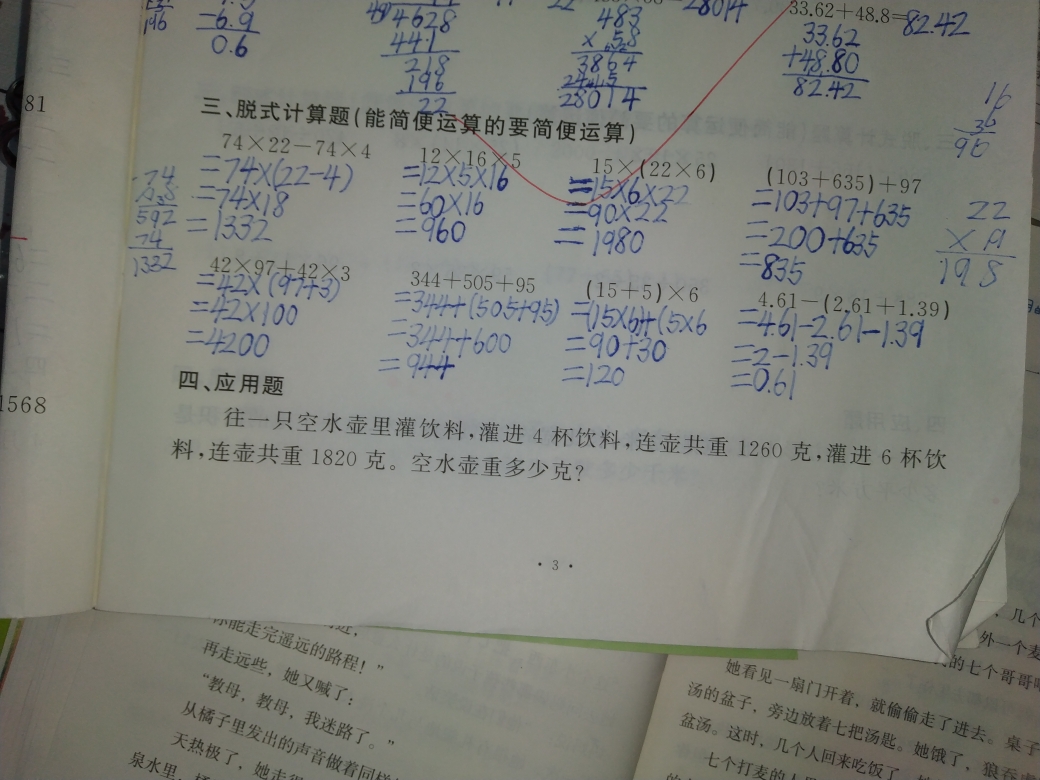 196
-6.9
0.6
4628
441
218
196
22
483
× 58
3864
28014
28014
33.62+48.8=82.42
33.62
+48.80
82.42
81
三、脱式计算题(能简便运算的要简便运算)
16
96
74×22-74×4
12×16×5
15×(22×6)
(103+635)+97
=74×(22-4)
=12×5×16
=15×6×22
=103+97+635
=74×18
=60×16
=90×22
=200+635
=1332
=960
=1980
=835
74
592
74
1332
22
198
42×97+42×3
344+505+95
(15+5)×6
4.61-(2.61+1.39)
=42×(97+3)
=344+(505+95)
=(15×6)+(5×6
=4.61-2.61-1.39
=42×100
=344+600
=90+30
=2-1.39
=4200
=944
=120
=0.61
1568
四、应用题
往一只空水壶里灌饮料,灌进 4 杯饮料,连壶共重 1260 克,灌进 6 杯饮
料,连壶共重 1820 克。空水壶重多少克?
· 3 ·
你能走完遥远的路程!”
再走远些,她又喊了:
“教母,教母,我迷路了。”
从橘子里发出的声音做着同样
天热极了,她走
泉水里,
几个
外一个麦
的七个哥哥
她看见一扇门开着,就偷偷走了进去。桌子
汤的盆子,旁边放着七把汤匙。她饿了,狼吞
盆汤。这时,几个人回来吃饭了,
七个打麦的人